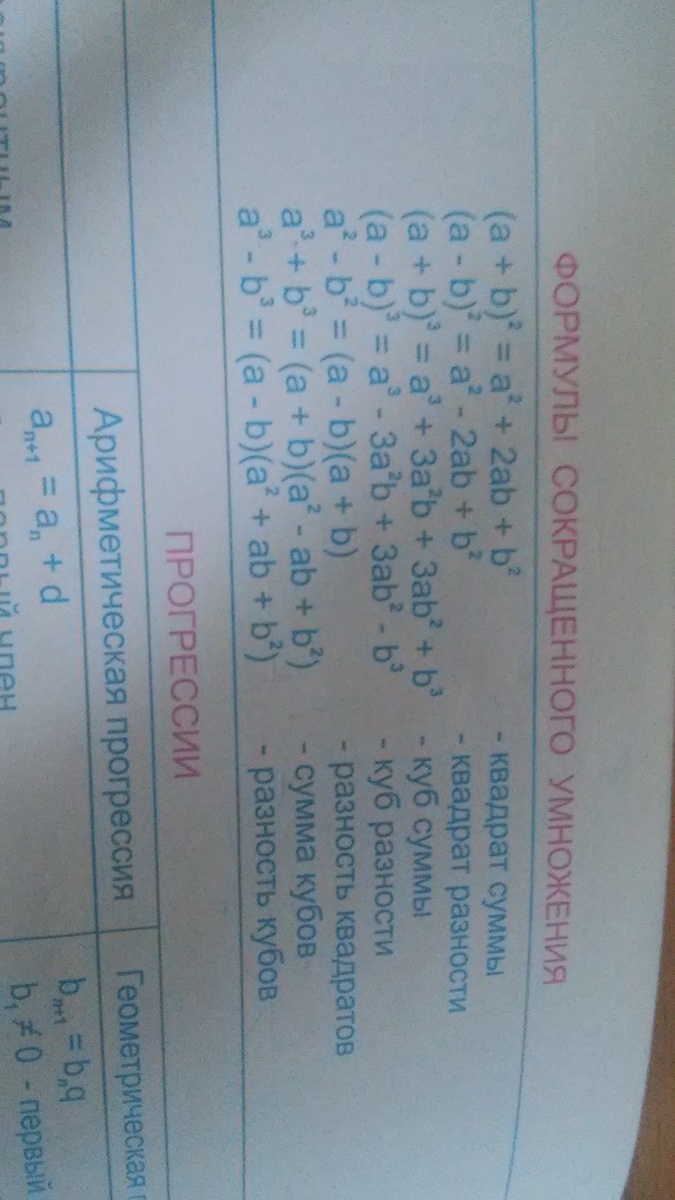 ФОРМУЛЫ СОКРАЩЕННОГО УМНОЖЕНИЯ
(a + b)² = a² + 2ab + b² - квадрат суммы
(a - b)² = a² - 2ab + b² - квадрат разности
(a + b)³ = a³ + 3a²b + 3ab² + b³ - куб суммы
(a - b)³ = a³ - 3a²b + 3ab² - b³ - куб разности
a² - b² = (a - b)(a + b) - разность квадратов
a³ + b³ = (a + b)(a² - ab + b²) - сумма кубов
a³ - b³ = (a - b)(a² + ab + b²) - разность кубов
ПРОГРЕССИИ
Арифметическая прогрессия Геометрическая
aₙ₊₁ = aₙ + d bₙ₊₁ = bₙq
первый член b₁ ≠ 0 - первый